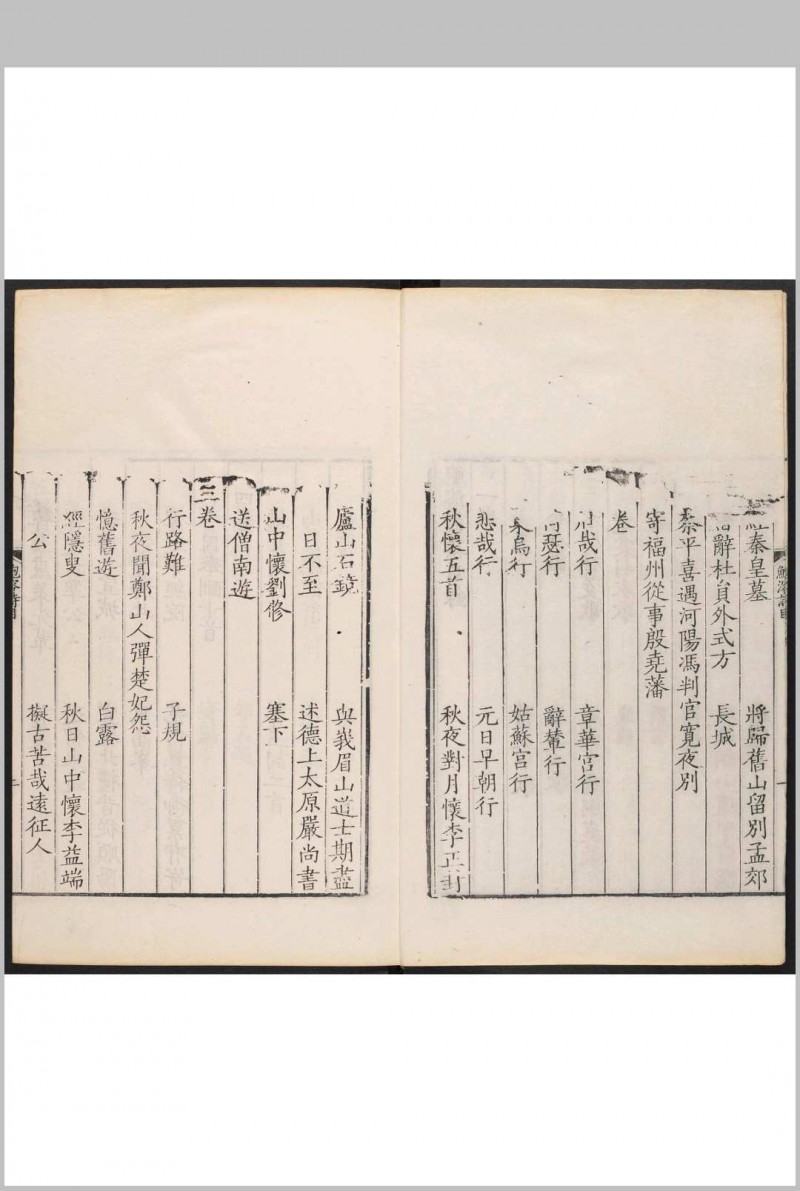 秦皇墓　將歸舊山留別孟郊
辭杜員外式方　長城
泰平喜遇河陽馮判官寬夜別
寄福州從事殷堯藩
卷
哉行　章華宮行
瑟行　辭輦行
烏行　姑蘇宮行
悲哉行　元日早朝行
秋懷五首　秋夜對月懷李正封
廬山石鏡　與峩眉山道士期盡
日不至　述德上太原嚴尚書
山中懷劉修　塞下
送僧南遊
三卷
行路難　子規
秋夜聞鄭山人彈楚妃怨
憶舊遊　白露
經隱叟　秋日山中懷李益端
公　擬古苦哉遠征人